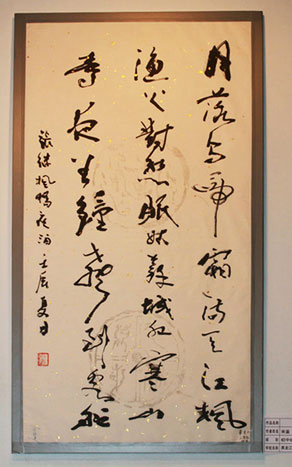 月落烏啼霜滿天江楓
漁火對愁眠姑蘇城外寒山
寺夜半鐘聲到客船
張继楓橋夜泊壬辰夏月